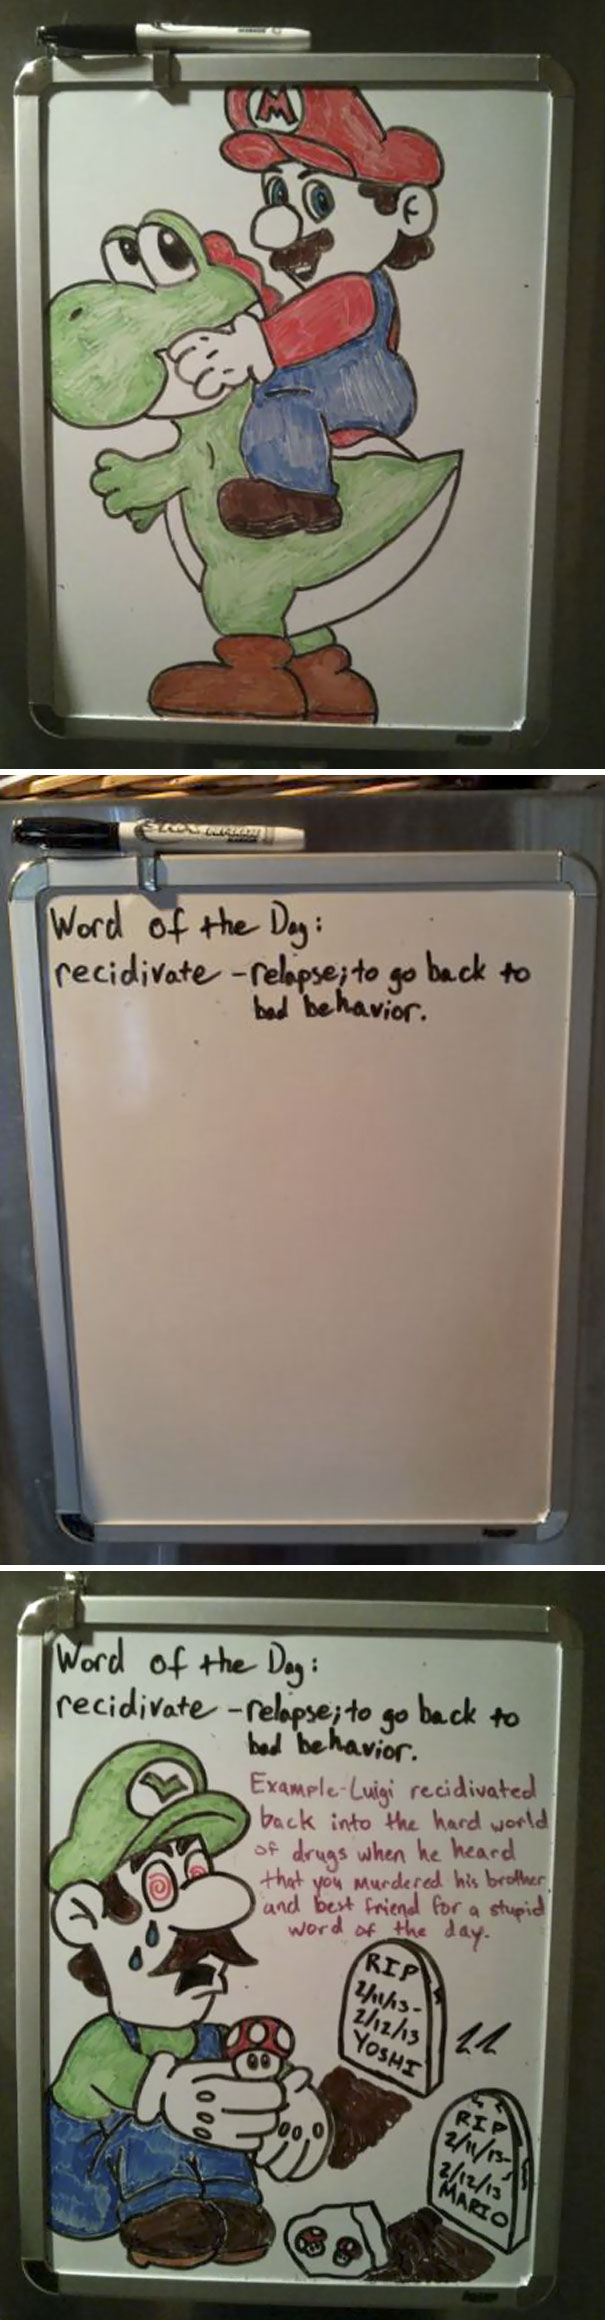 M
Word of the Day:
recidivate - relapse; to go back to
bad behavior.
Word of the Day:
recidivate - relapse; to go back to
bad behavior.
Example - Luigi recidivated
back into the hard world
of drugs when he heard
that you murdered his brother
and best friend for a stupid
word of the day.
RIP
2/11/13-
2/12/13
YOSHI
RIP
2/11/13-
2/12/13
MARIO